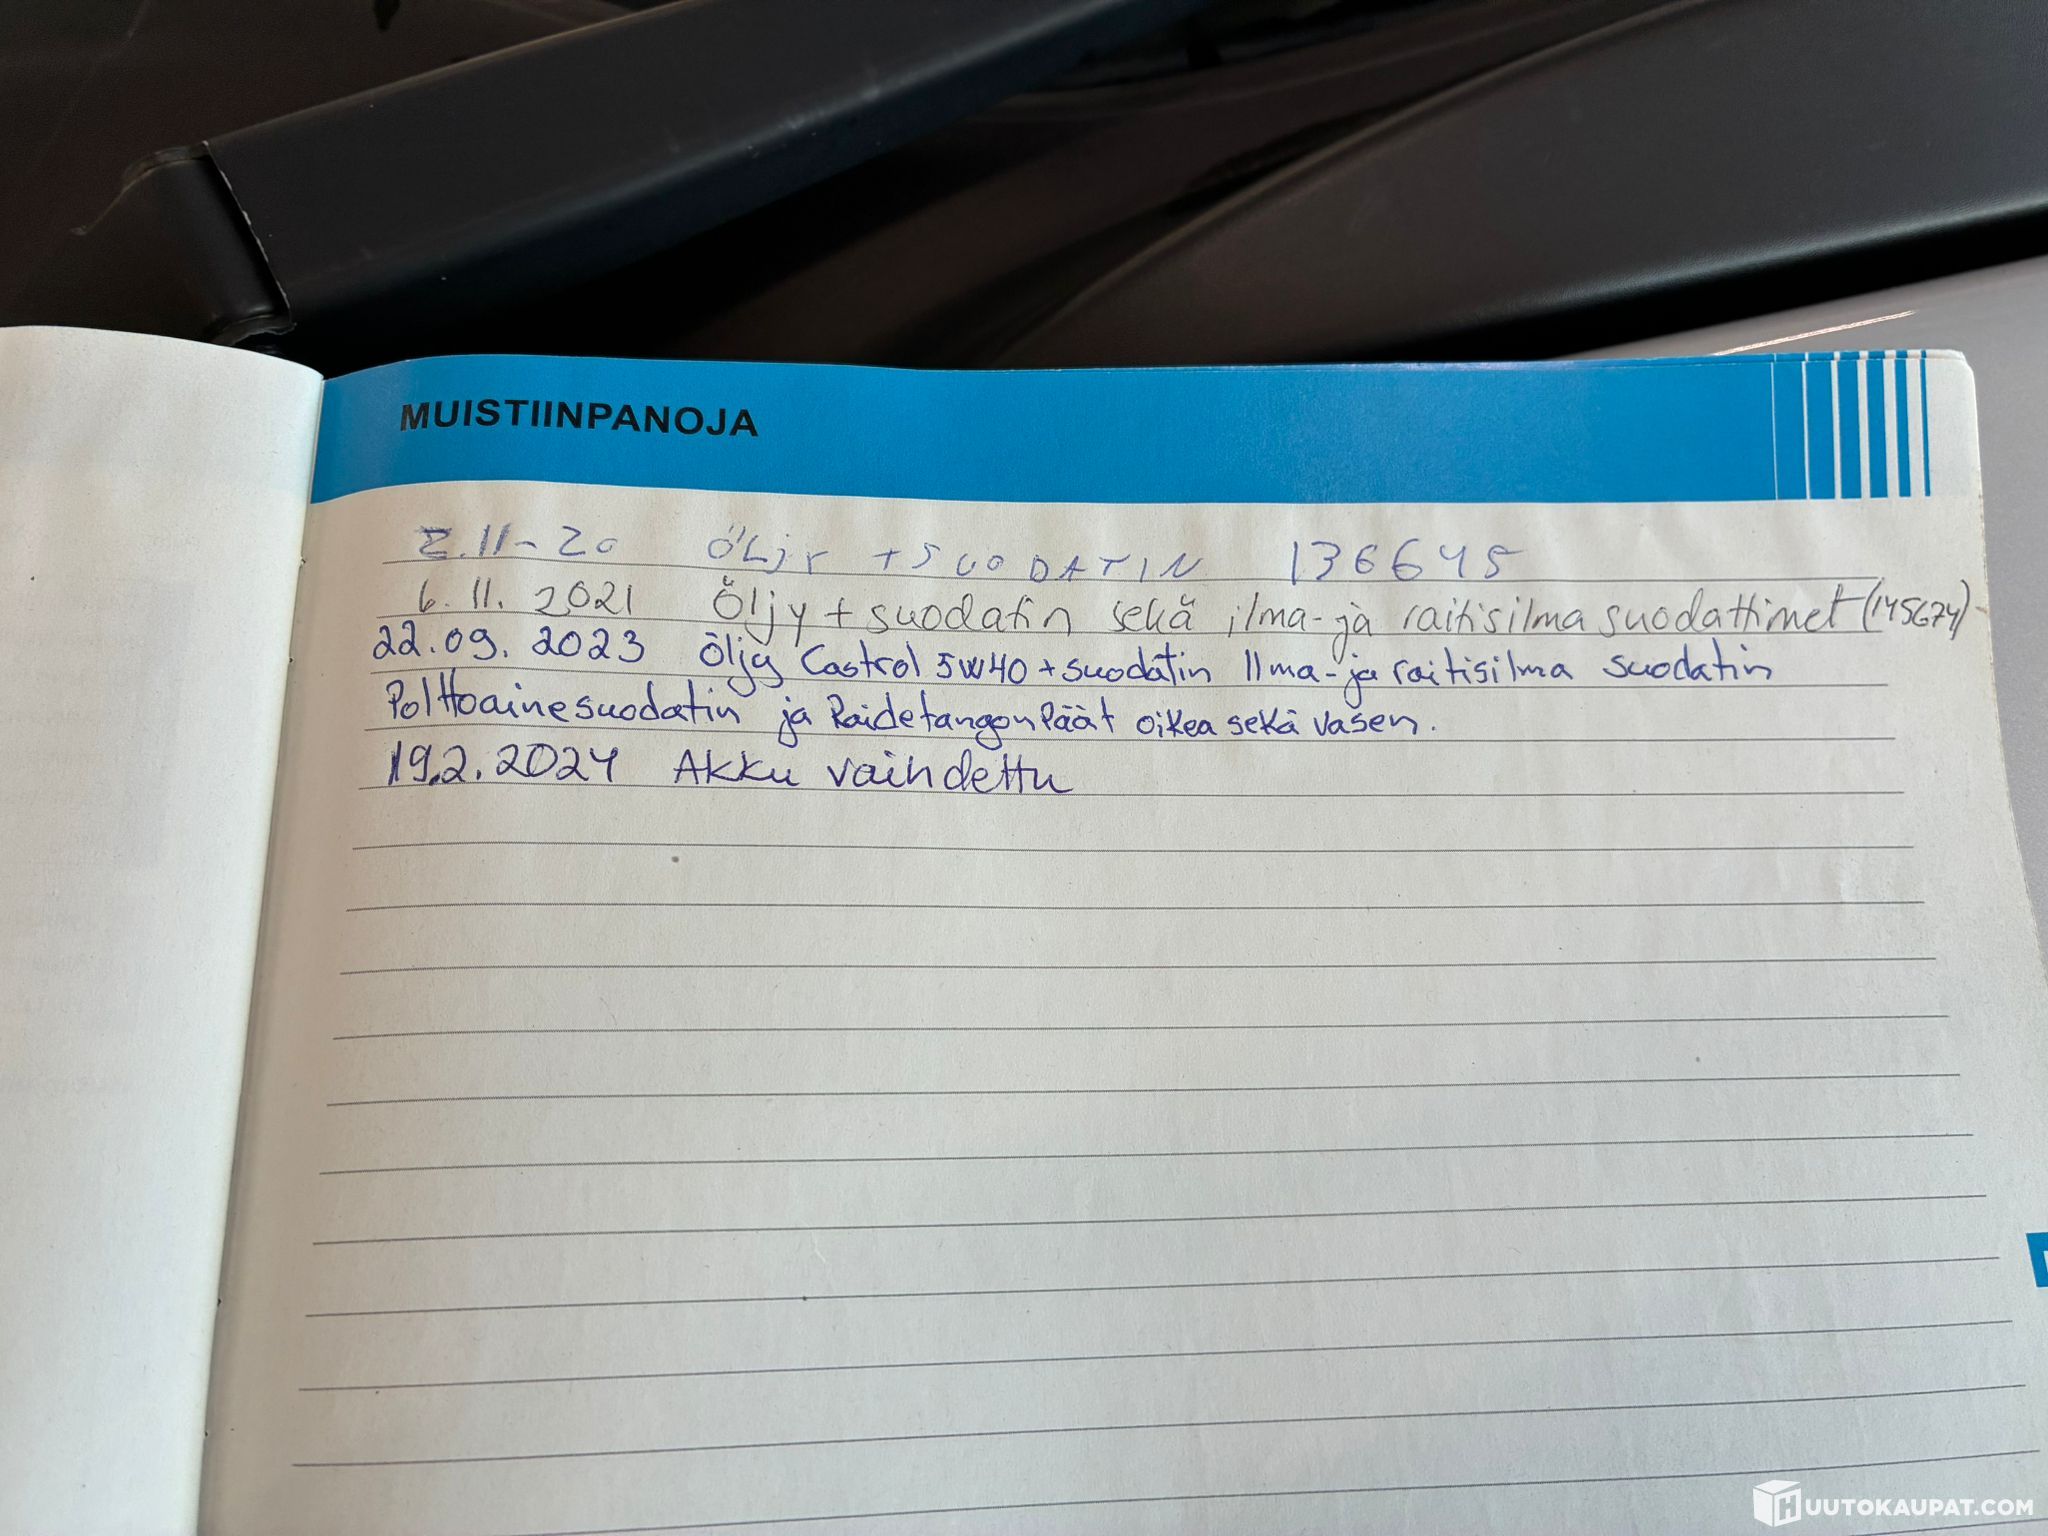 MUISTIINPANOJA
2.11-20 ÖLJY + SUODATIN 136645
6.11.2021 Öljy + suodatin sekä ilma- ja raitisilma suodattimet (145674)
22.09.2023 Öljy Castrol 5W40 + suodatin Ilma- ja raitisilma suodatin
Polttoainesuodatin ja Raidetangon Päät oikea sekä vasen.
19.2.2024 Akku vaihdettu
HUUTOKAUPAT.COM